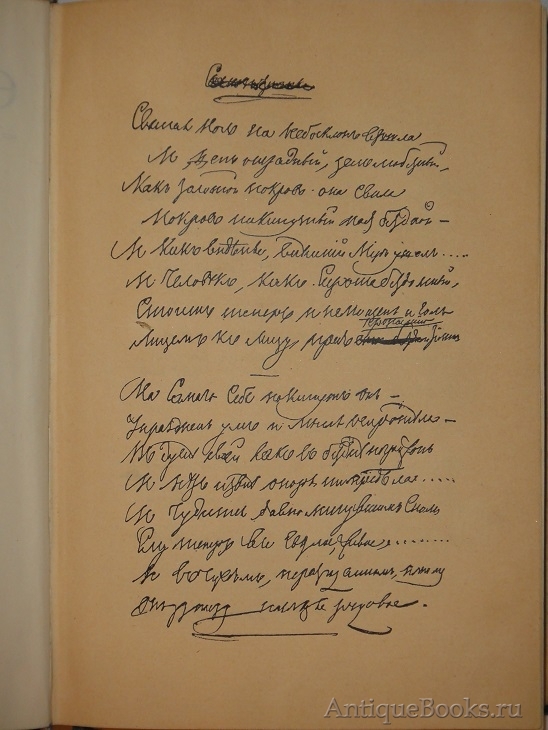 Святая ночь на небосклонъ взошла
И День отрадный, день любезный,
Какъ золотой покровъ она свила
Покровъ накинутый надъ бездной –
И какъ виденье, внешний Миръ ушелъ.....
И Человѣкъ, какъ Сирота бездомный,
Стоитъ теперь и немощенъ и голъ
пропастию
Лицемъ къ лицу, предъ темной
На Самаго Себя покинутъ онъ –
Упраздненъ умъ и Мысль осиротѣла –
Въ душѣ своей какъ въ безднѣ погруженъ
И нѣтъ извнѣ опоры ни предѣла.....
И Чудится давно минувшимъ Сномъ
Ему теперь все Свѣтлое, живое........
И въ чуждомъ, неразгаданномъ, ночномъ
Онъ узнаетъ наслѣдье родовое.
AntiqueBooks.ru